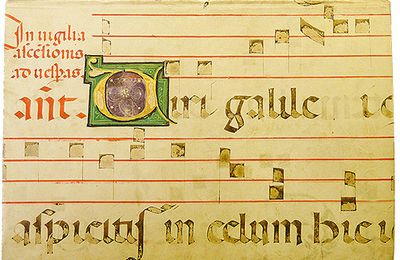 In uigilia
ascēsionis
ad uesp̄as.
añt. Uiri galile i
aspicitis in celum hic